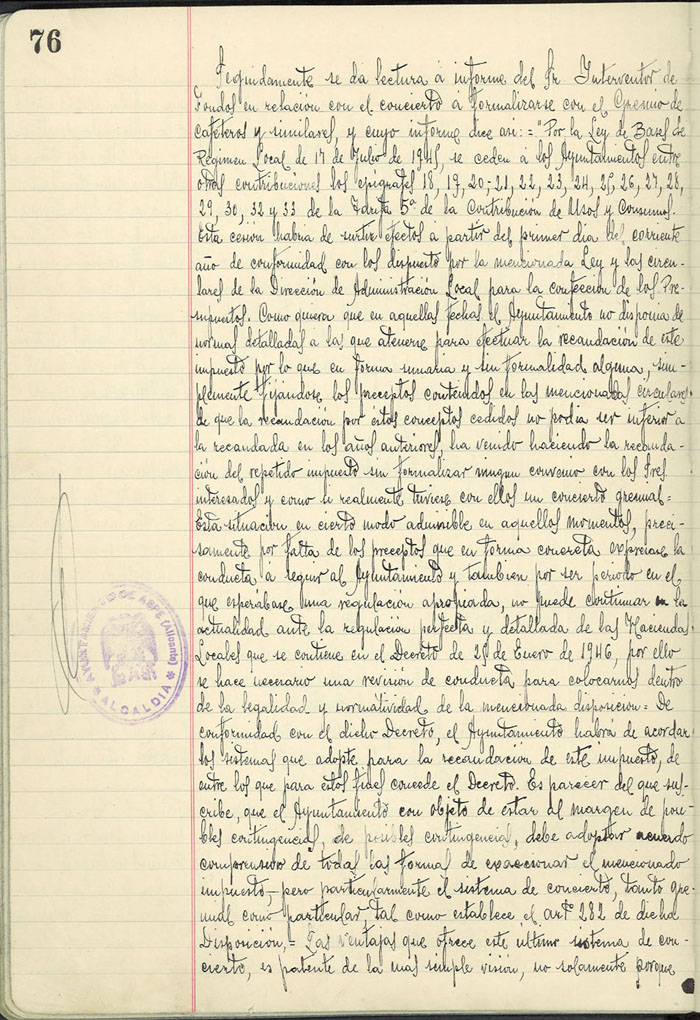 76
Seguidamente se da lectura a informe del Sr. Interventor de
Fondos en relación con el concierto a formalizarse con el Gremio de
cafeteros y similares, y cuyo informe dice asi: = "Por la Ley de Bases de
Regimen Local de 17 de Julio de 1945, se ceden a los Ayuntamientos entre
otras contribuciones los epigrafes 18, 19, 20, 21, 22, 23, 24, 25, 26, 27, 28,
29, 30, 32 y 33 de la Tarifa 5ª de la Contribución de Usos y Consumos.
Esta cesion habria de surtir efectos a partir del primer dia del corriente
año de conformidad con los dispuesto por la mencionada Ley y las circu-
lares de la Dirección de Administración Local para la confección de los Pre-
supuestos. Como quiera que en aquellas fechas el Ayuntamiento no disponia de
normas detalladas a las que atenerse para efectuar la recaudación de este
impuesto por lo que en forma sumaria y sin formalidad alguna, sim-
plemente fijandose los preceptos contenidos en las mencionadas circulares
de que la recaudación por estos conceptos cedidos no podia ser inferior a
la recaudada en los años anteriores, ha venido haciendo la recauda-
ción del repetido impuesto sin formalizar ningun convenio con los Sres.
interesados y como si realmente tuviese con ellos un concierto gremial =
Esta situación en cierto modo admisible en aquellos momentos, preci-
samente por falta de los preceptos que en forma concreta expresase la
conducta a seguir al Ayuntamiento y tambien por ser periodo en el
que esperábase una regulación apropiada, no puede continuar en la
actualidad ante la regulación perfecta y detallada de las Haciendas
Locales que se contiene en el Decreto de 25 de Enero de 1946, por ello
se hace necesario una revisión de conducta para colocarnos dentro
de la legalidad y normátividad de la mencionada disposición = De
conformidad con el dicho Decreto, el Ayuntamiento habrá de acordar
los sistemas que adopte para la recaudacion de este impuesto, de
entre los que para estos fines concede el Decreto. Es parecer del que sus-
cribe, que el Ayuntamiento con objeto de estar al margen de posi-
bles contingencias, de posibles contingencias, debe adoptar acuerdo
comprensivo de todas las formas de exaccionar el mencionado
impuesto, pero particularmente el sistema de concierto, tanto gre-
mial como particular tal como establece el artº 282 de dicha
Disposición, = Las ventajas que ofrece este último sistema de con-
cierto, es patente de la mas simple visión, no solamente porque
AYUNTAMIENTO DE ASPE (Alicante)
ALCALDIA